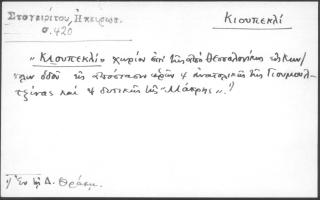 Σταγειρίτου, Ηπειρωτ.
σ. 420
Κιουπεκλί
"Κιουπεκλί" χωρίον επί της από Θεσσαλονίκης εις Κων/
πλιν οδού εις απόστασιν ωρών 4 ανατολικώς της Γιουμουλ-
τζίνας και 4 δυτικώς της "Μάκρης".¹⁾
¹⁾ Εν τη Δ. Θράκη.